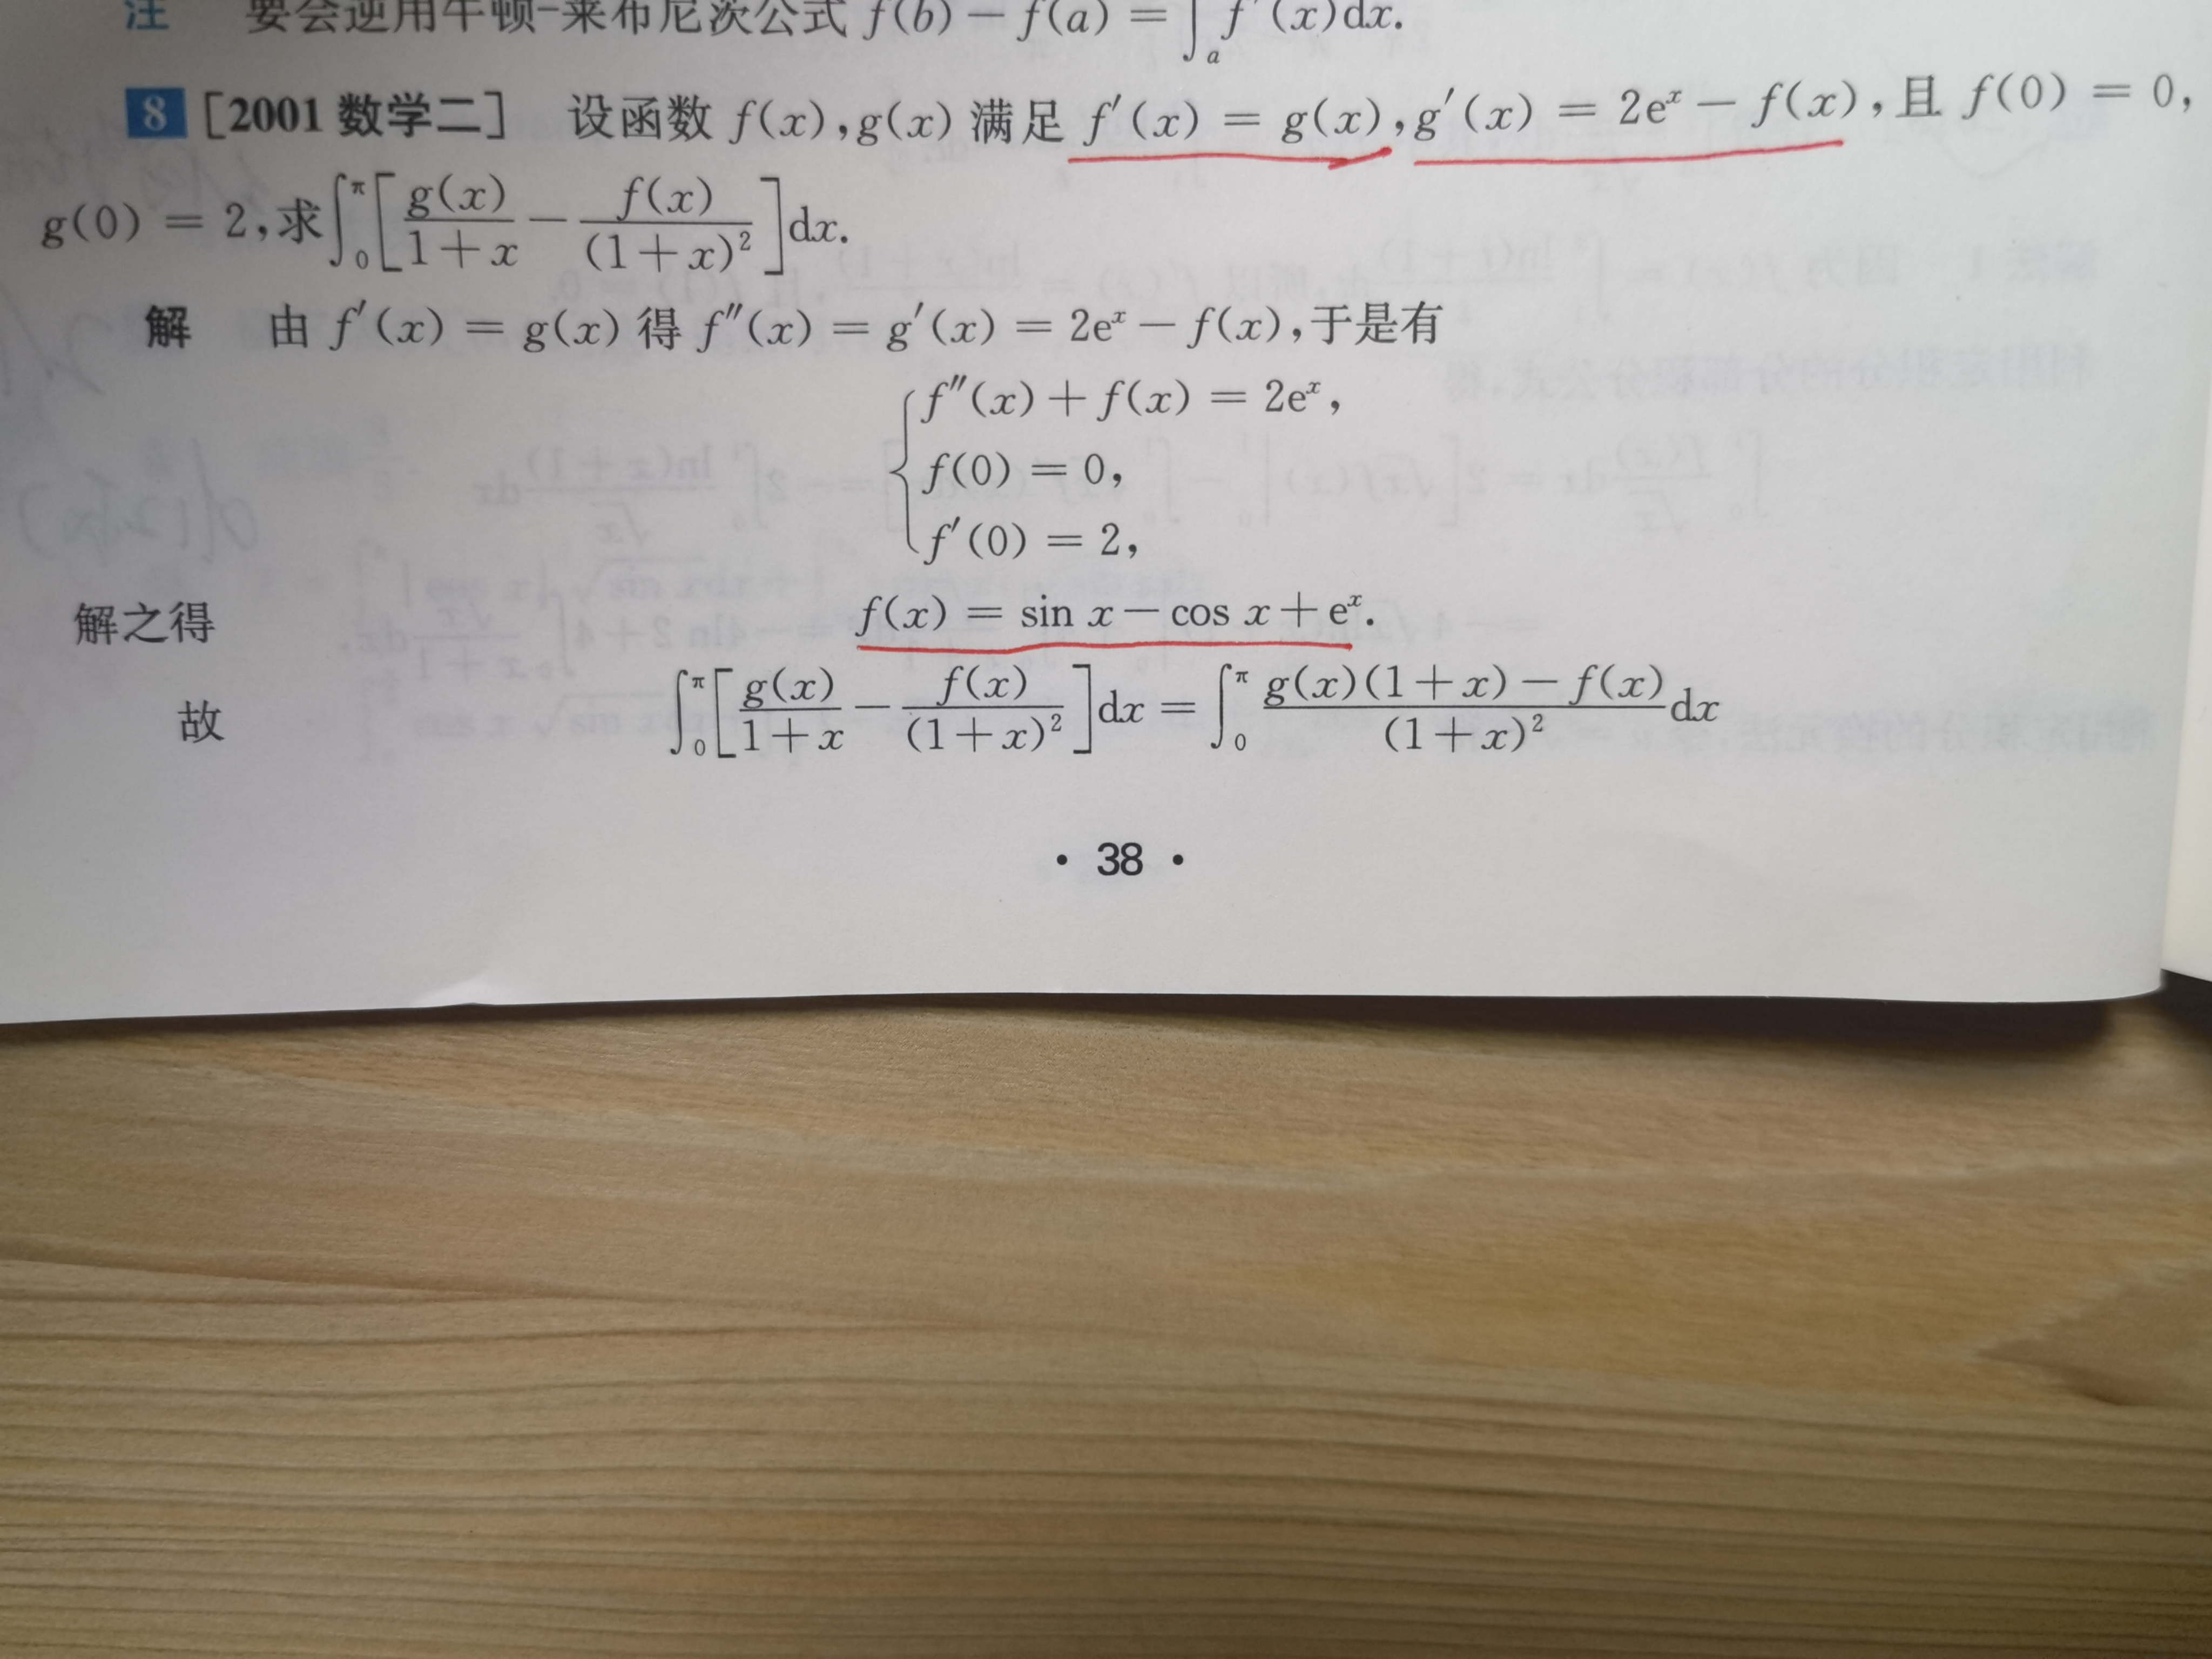 注 要会逆用牛顿-莱布尼茨公式 f(b) − f(a) = ∫ₐ f′(x)dx.
8 [2001 数学二] 设函数 f(x),g(x) 满足 f′(x) = g(x),g′(x) = 2eˣ − f(x),且 f(0) = 0,
g(0) = 2,求∫₀^π [g(x)/(1+x) − f(x)/(1+x)²]dx.
解 由 f′(x) = g(x) 得 f″(x) = g′(x) = 2eˣ − f(x),于是有
f″(x) + f(x) = 2eˣ,
f(0) = 0,
f′(0) = 2,
解之得 f(x) = sin x − cos x + eˣ.
故 ∫₀^π [g(x)/(1+x) − f(x)/(1+x)²]dx = ∫₀^π (g(x)(1+x) − f(x))/(1+x)² dx
· 38 ·